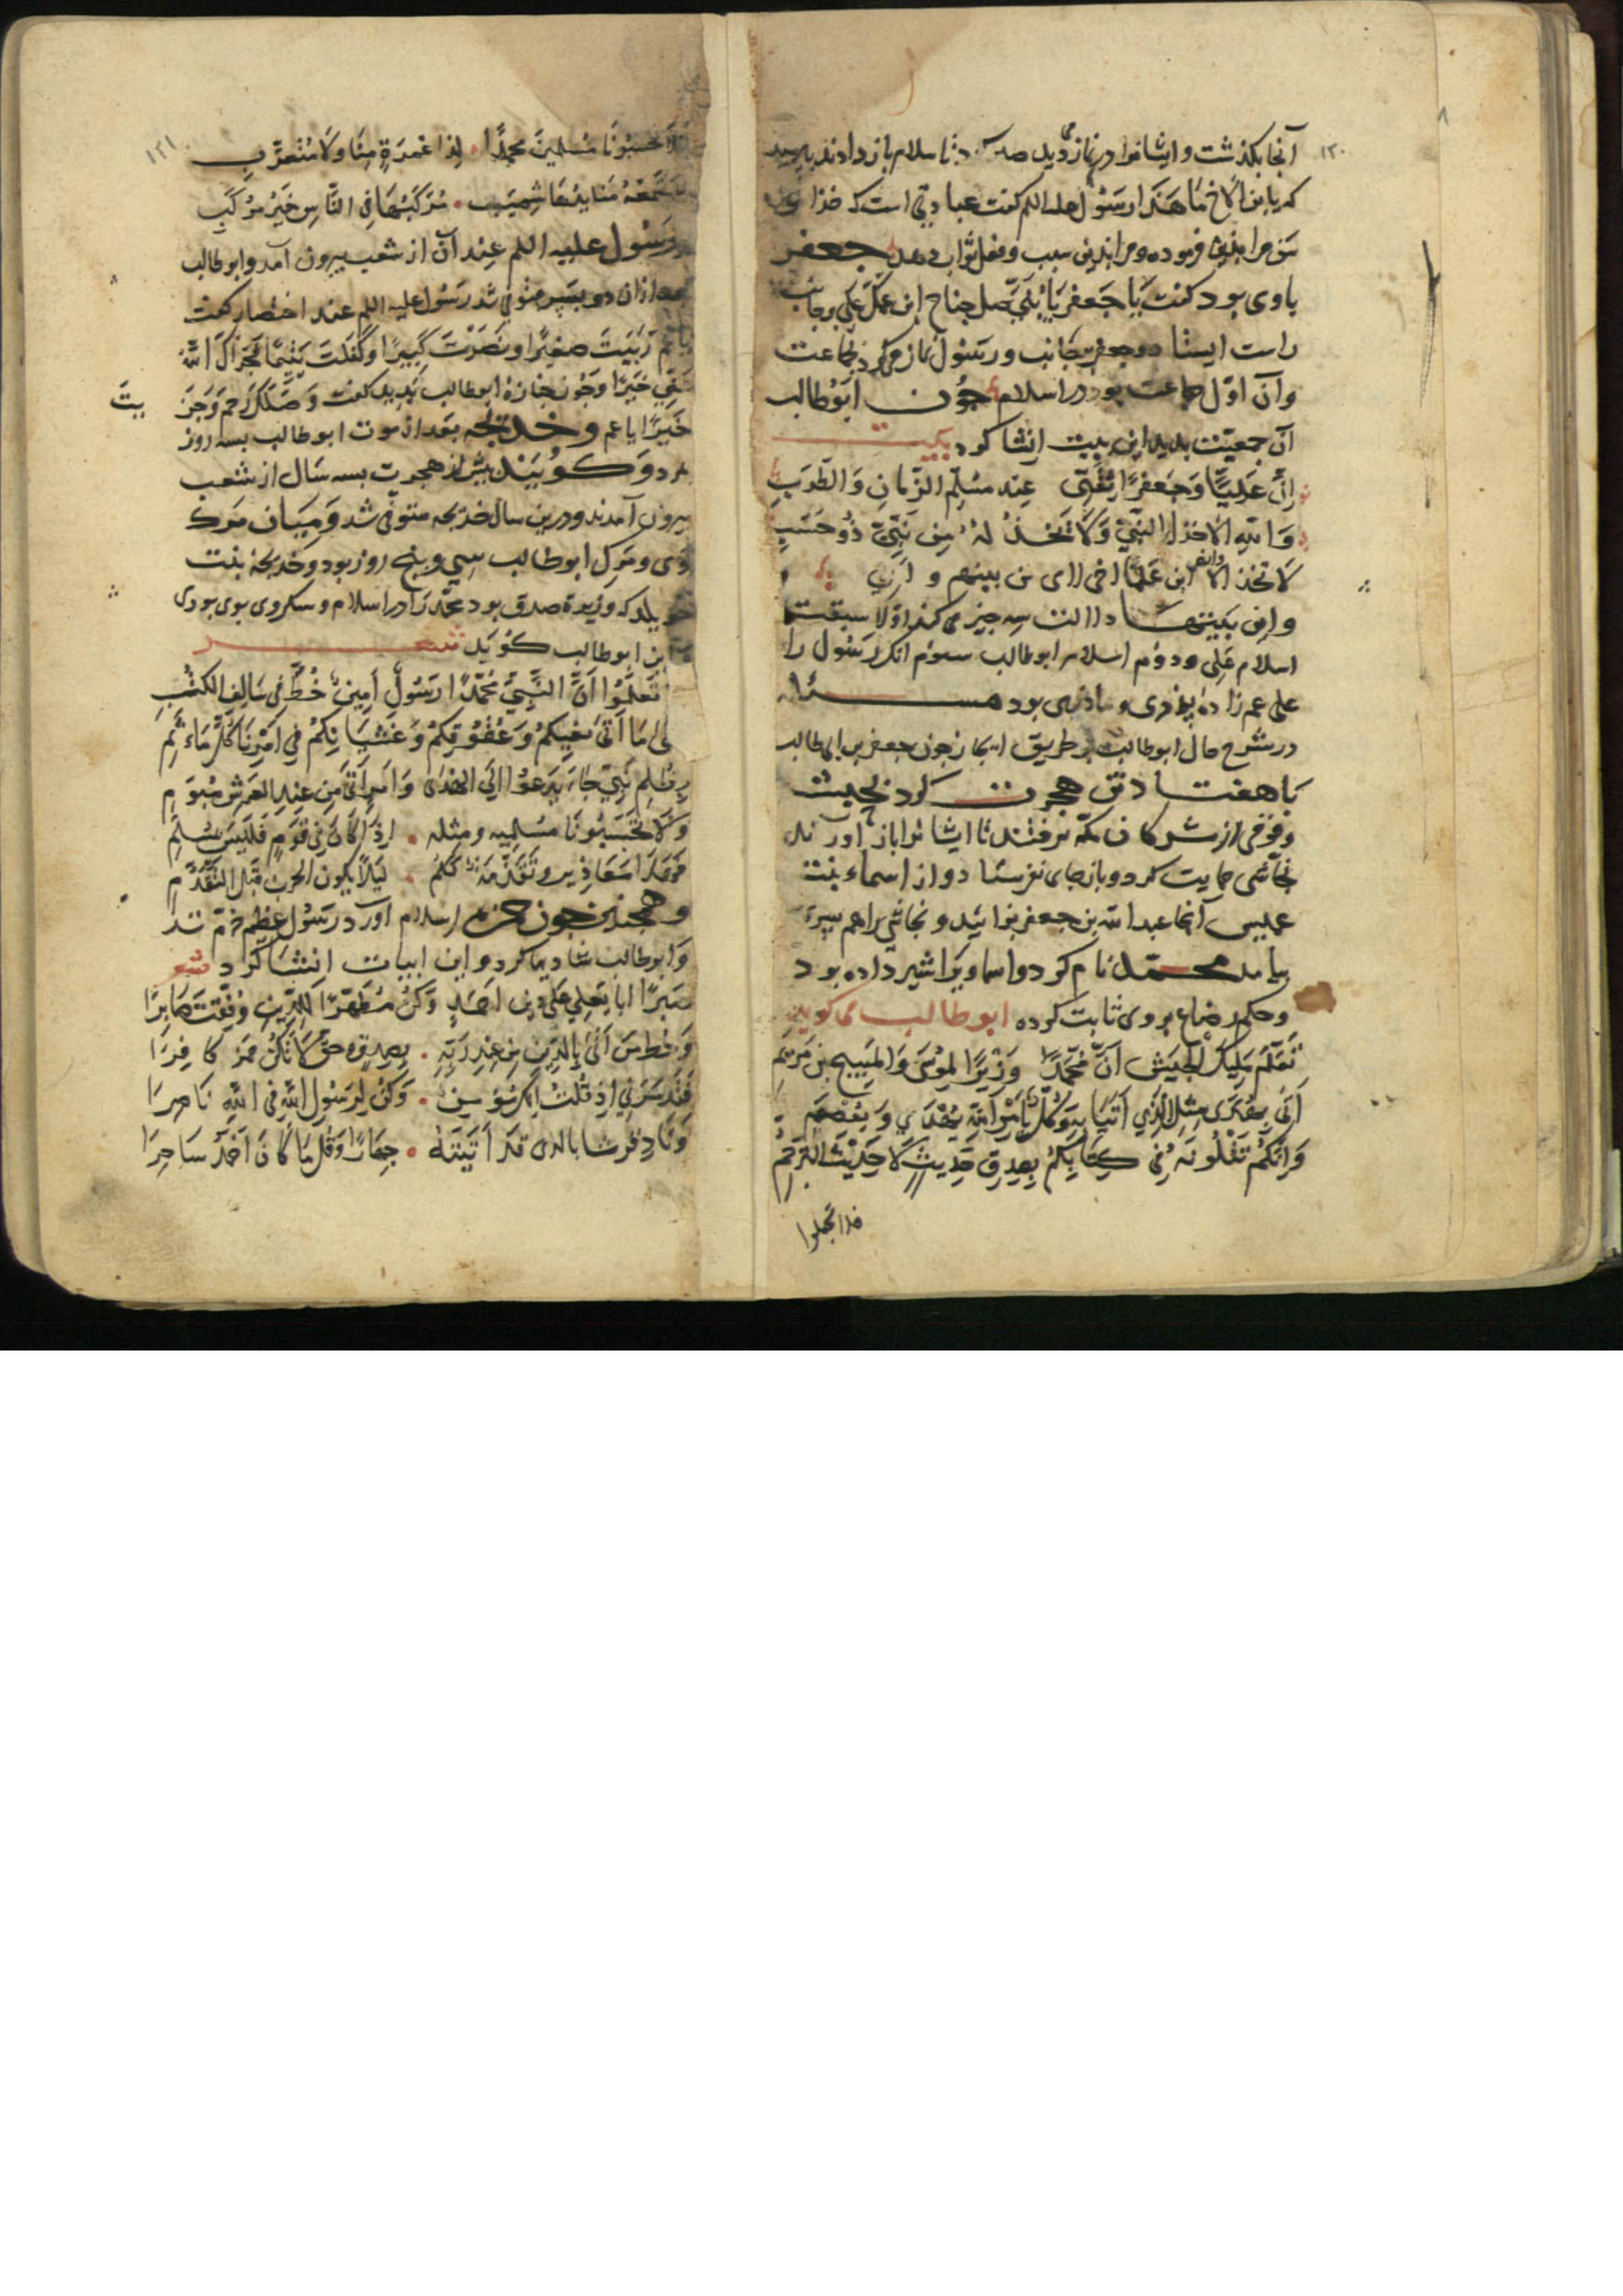 ١٢٠
آنجا بکذشت و ایشانرا در نماز دید تا سلام باز دادند
که یا بن الاخ ما هذا رسول علیه السلم کفت عبادتی است که خذا
مرا بذین فرموده و مرا بدین سبب و فعل ثواب دهد جعفر
با وی بود کفت یا جعفر یا بنی صل جناح ابن عمک علی بر جانب
راست ایستاد و جعفر بجانب و رسول نماز می کرد بجماعت
و آن اول جماعت بود در اسلام چون ابوطالب
آن جمعیت بدید این بیت انشا کرد بیت
ان علیا و جعفرا ثقتی عند مسلم الزمان والکرب
والله لا اخذل النبی ولا یخذله من بنی ذو حسب
لا تخذلا وانصرا ابن عمکما اخی لامی من بینهم و ابی
و این بیتها دلالت سه چیز می کند اولا سبقت
اسلام علی و دوم اسلام ابوطالب سوم آنکه رسول را
علی عم زاده پذری و ماذری بود مسئله
در شرح حال ابوطالب بر طریق ایجاز چون جعفر بن ابی طالب
با هفتاد تن هجرت کرد بحبشه
و قومی از مشرکان مکه برفتند تا ایشانرا باز آورند
نجاشی حمایت کرد و باز جای نفرستاد و از اسماء بنت
عمیس آنجا عبدالله بن جعفر بزائید و نجاشی را هم پسری
بیامد محمد نام کرد و اسما ویرا شیر داده بود
و حکم رضاع بروی ثابت کرده ابوطالب می کوید
تعلم ملیک الحبش ان محمدا وزیرا لموسی والمسیح بن مریم
اتی بهدی مثل الذی اتیا به وکل بامر الله یهدی ویعصم
وانکم تتلونه فی کتابکم بصدق حدیث لا حدیث الترجم
فلا تجعلوا
١٢١
فلا تحسبونا مسلمین محمدا لذا غمرة منا ولا متعرب
ستمنعه منا ید هاشمیة مرکبها فی الناس خیر مرکب
رسول علیه السلم عند آن از شعب بیرون آمد و ابوطالب
بعد از آن دو بسبر متوفی شد رسول علیه السلم عند احتضار کفت
یا عم ربیت صغیرا ونصرت کبیرا وکفلت یتیما فجزاک الله
عنی خیرا و چون جنازهٔ ابوطالب بدید کفت وصلتک رحم وجزیت
خیرا یا عم و خدیجه بعد از موت ابوطالب بسه روز بیت
مرد و کویند پیش از هجرت بسه سال از شعب
بیرون آمدند و درین سال خدیجه متوفی شد و میان مرک
وی و مرک ابوطالب سی و پنج روز بود و خدیجه بنت
خویلد که وزیرهٔ صدق بود محمد را در اسلام و سکون وی بوی بودی
ابن ابوطالب کوید شعر
تعلموا ان النبی محمدا رسول امین خط فی سالف الکتب
وعقوقکم وغشیانکم فی امرنا کل ماثم
بظلم نبی جاء یدعوا الی الهدی وامر اتی من عند العرش مبرم
ولا تحسبونا مسلمیه ومثله اذا کان فی قوم فلیس بمسلم
لیلا یکون الحرب قبل التقدم
وهمچنین چون حمزه اسلام آورد رسول عظیم خرم شد
و ابوطالب شادیها کرد و این ابیات انشا کرد شعر
صبرا ابا یعلی علی دین احمد وکن مظهرا للدین وفقت صابرا
وحط من اتی بالدین من عند ربه بصدق وحق لا تکن حمز کافرا
فقد سرنی اذ قلت انک مؤمن وکن لرسول الله فی الله ناصرا
وناد قریشا بالذی قد اتیته جهارا وقل ما کان احمد ساحرا